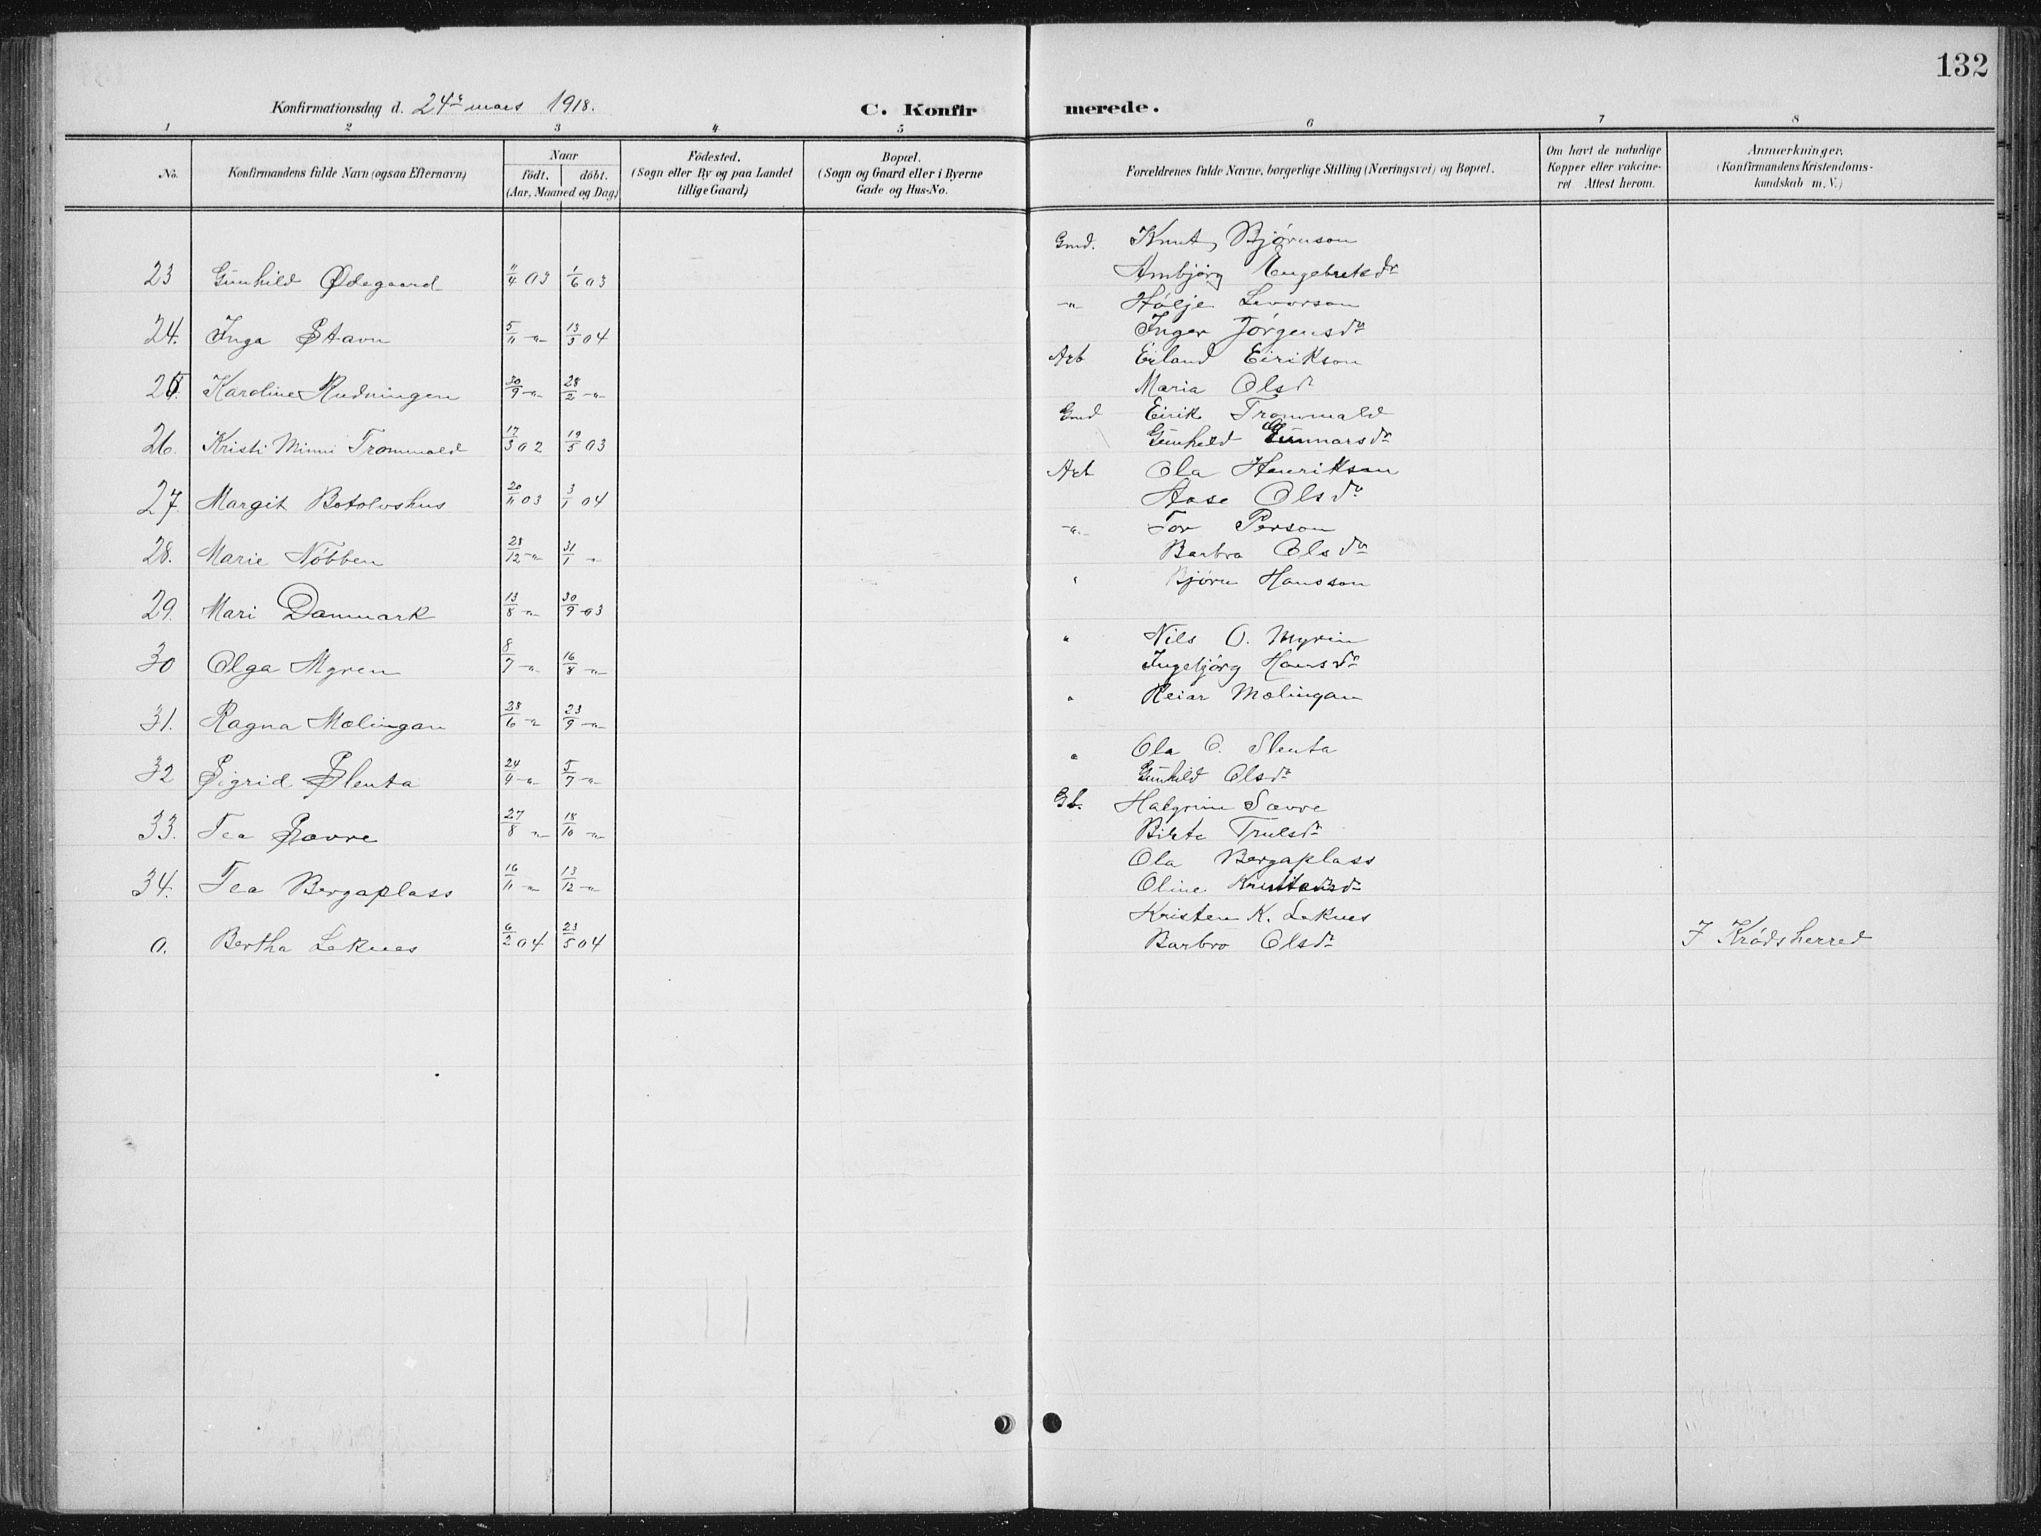 132
Konfirmationsdag d. 24de mars 1918. C. Konfirmerede.
1 2 3 4 5 6 7 8
No. Konfirmandens fulde Navn (ogsaa Efternavn) Naar Födt. döbt. (Aar, Maaned og Dag) Födested. (Sogn eller By og paa Landet tillige Gaard) Bopæl. (Sogn og Gaard eller i Byerne Gade og Hus-No. Forældrenes fulde Navne, borgerlige Stilling (Næringsvei) og Bopæl. Om havt de naturlige Kopper eller vakcineret Attest herom. Anmærkninger, (Konfirmandens Kristendomskundskab m. V.)
Gmd. Knut Bjørnson
23 Gunhild Ødegaard 11/4 03 1/6 03 Ambjørg Engebretsdr
-"- Hölje Levorson
24. Inga Stavn 5/11 -"- 13/3 04 Inger Jörgensdr
Arb Erland Eirikson
25. Karoline Rudningen 30/9 -"- 28/2 -"- Maria Olsdr
Gmd Eirik Trommald
26. Kristi Minni Trommald 17/3 02 19/5 03 Gunhild Gunnarsdr
Arb Ola Henrikson
27. Margit Botolvshus 20/11 03 3/1 04 Aase Olsdr
-"- Tor Person
28. Marie Nöbben 28/12 -"- 31/1 " Barbro Olsdr
" Björn Hansson
29. Mari Danmark 13/8 -"- 30/9 03
" Nils O. Myren
30 Olga Myren 8/7 -"- 16/8 -"- Ingebjörg Hansdr
" Reiar Mælingan
31. Ragna Mælingan 28/6 -"- 23/9 -"-
" Ola O. Slenta
32 Sigrid Slenta 24/4 -"- 5/7 -"- Gunhild Olsdr
Gb. Halgrim Sævre
33. Tea Sævre 27/8 -"- 18/10 -"- Birte Trulsdr
Ola Bergaplass
34. Tea Bergaplass 16/11 -"- 13/12 -"- Oline
Kristen K. Leknes
a. Bertha Leknes 6/2 04 23/5 04 Barbro Olsdr I Krödsherred